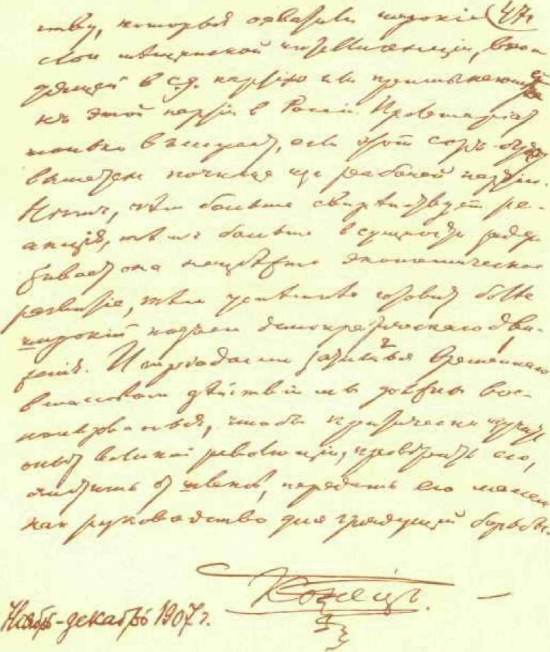 ству, которые охватили широкие 47
слои мещанской интеллигенции, вхо-
дящей в с.д. партию или примыкающей
къ этой партiи в России. Пролетариат
только выиграет, если этот соръ будет
выметен почище из рабочей партiи.
Нет, чѣм больше свирѣпствует ре-
акцiя, тѣм больше в сущности задер-
живает она неизбѣжное экономическое
развитiе, тѣм успѣшнѣе готовит болѣе
широкiй подъем демократическаго дви-
женiя. И перiодами затишья временнаго
в массовом дѣйствiи мы должны вос-
пользоваться, чтобы критически изучить
опыт великой революцiи, проверить его,
очистить от шлака, передать его массам
как руководство для грядущей борьбы.
Конец.
Ноябрь-декабрь 1907 г.